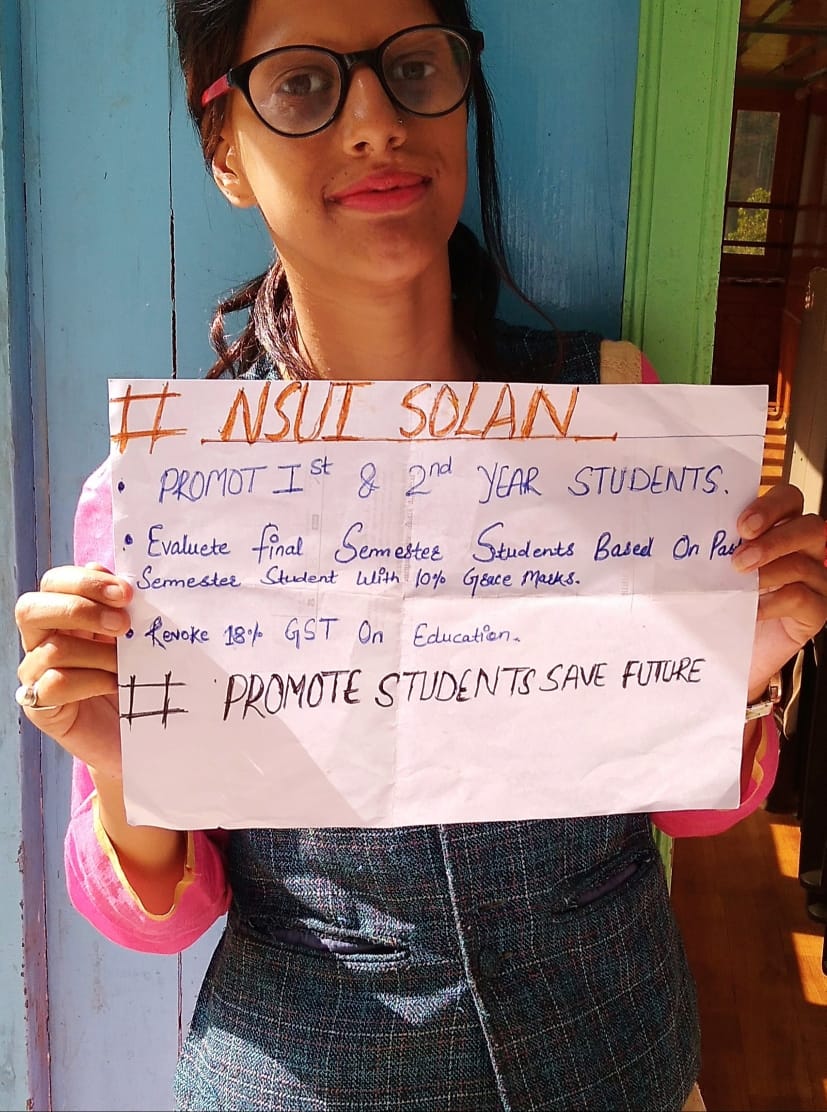 # NSUI SOLAN
• PROMOT Ist & 2nd YEAR STUDENTS.
• Evaluete final Semester Students Based On Past
Semester Student With 10% Grace Marks.
• Revoke 18% GST On Education.
# PROMOTE STUDENTS SAVE FUTURE